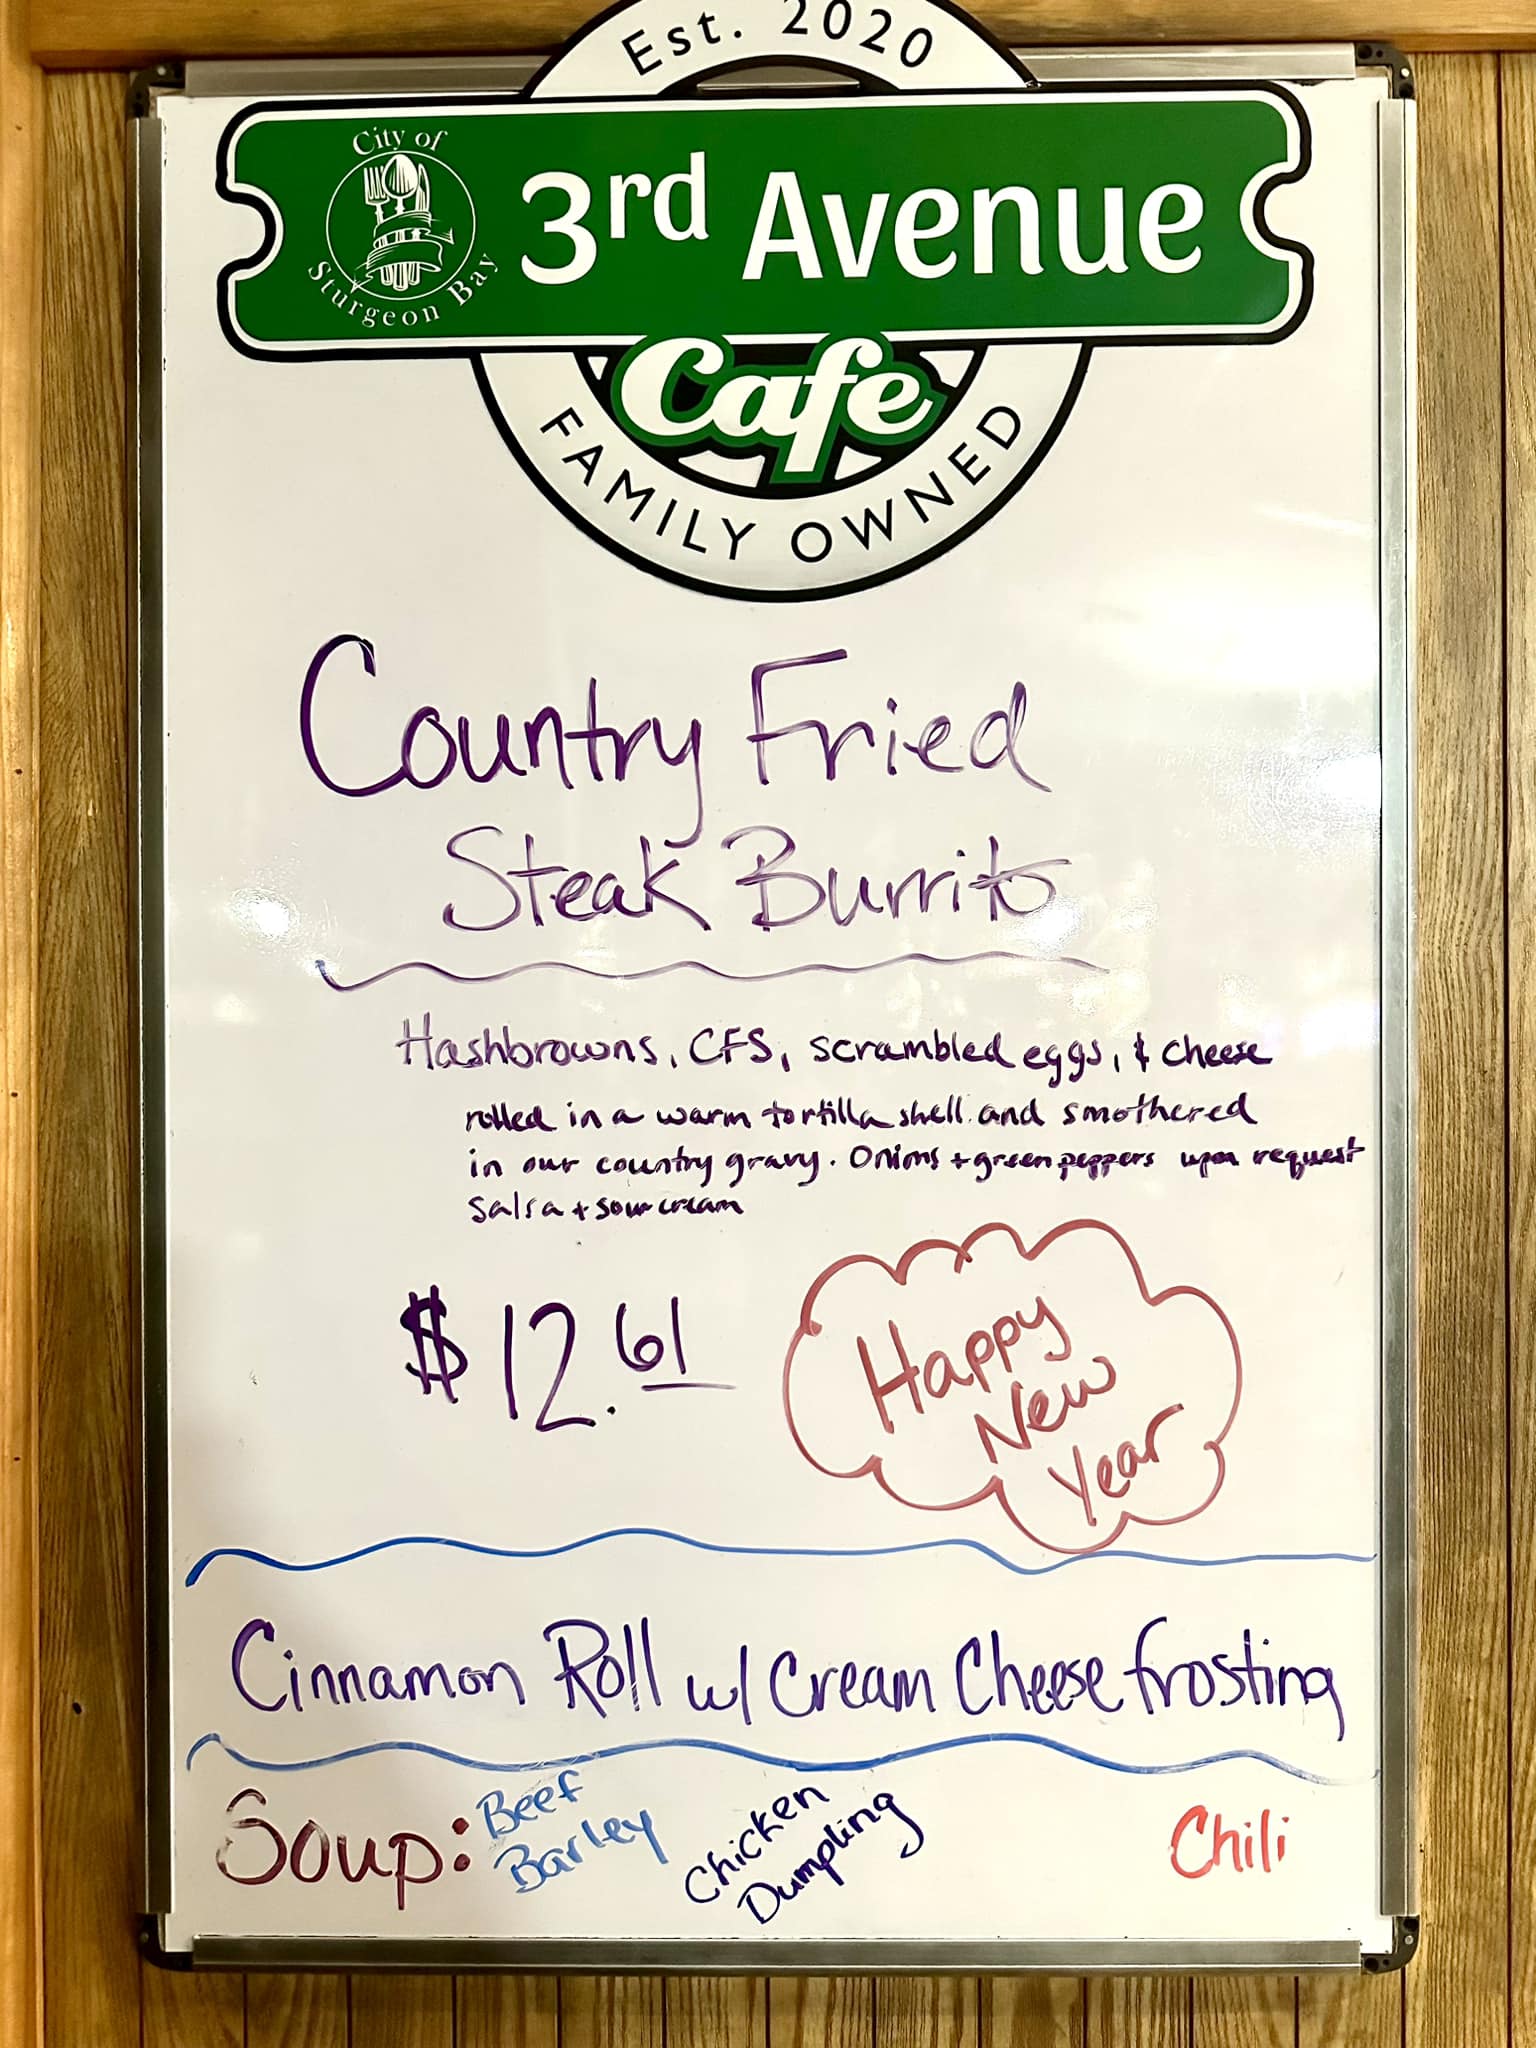 Est. 2020
City of
Sturgeon Bay
3rd Avenue
Cafe
FAMILY OWNED
Country Fried
Steak Burrito
Hashbrowns, CFS, scrambled eggs, & cheese
rolled in a warm tortilla shell and smothered
in our country gravy. Onions + green peppers upon request
Salsa + sour cream
$12.61
Happy
New
Year
Cinnamon Roll w/ Cream Cheese frosting
Soup:
Beef
Barley
Chicken
Dumpling
Chili